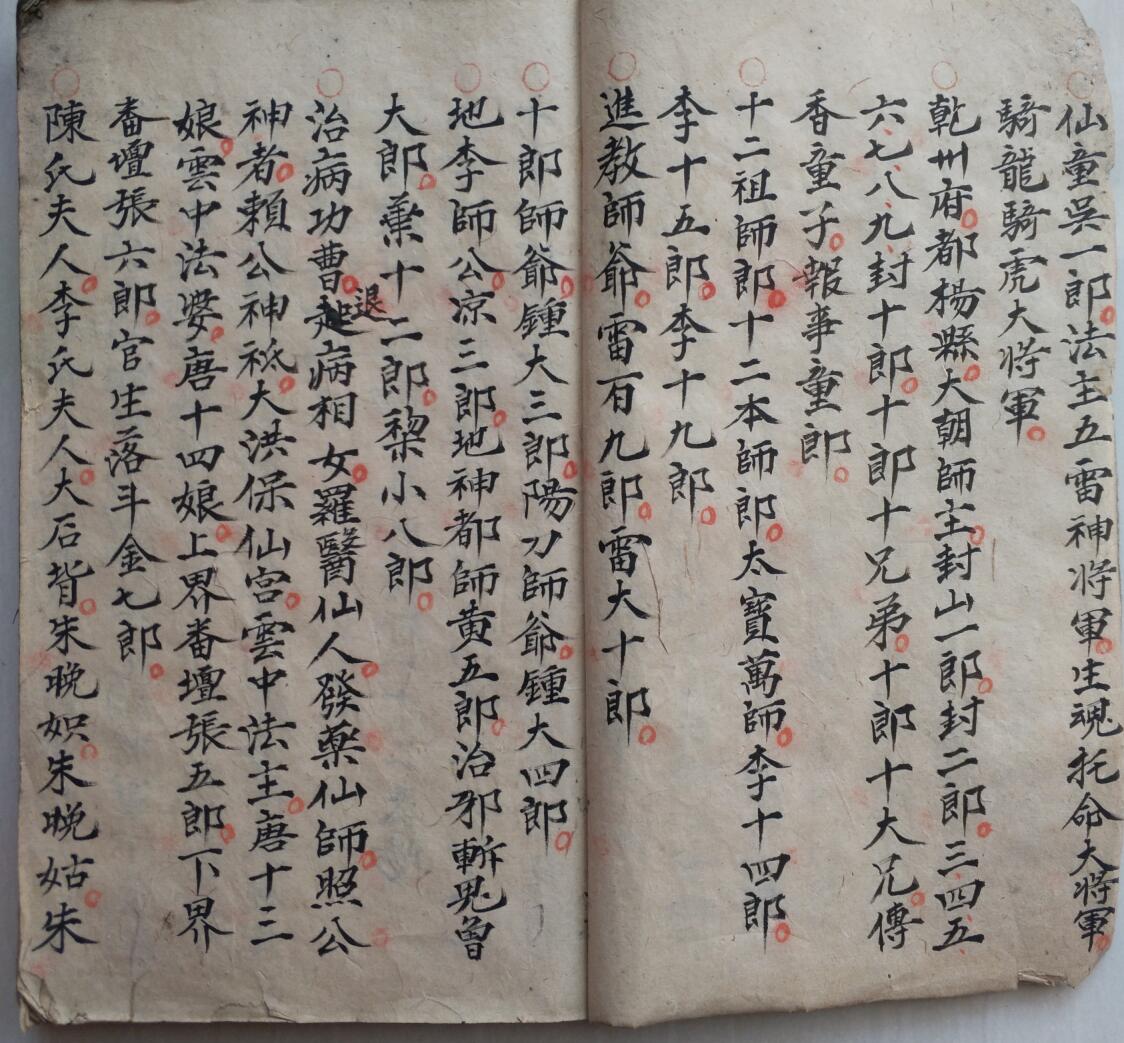 仙童吳一郎法主五雷神将軍生魂托命大将軍
騎龍騎虎大将軍
乾州府都楊縣大朝師主封山一郎封二郎三四五
六七八九封十郎十郎十兄弟十郎十大兄傳
香童子報事童郎
十二祖師郎十二本師郎太寶萬師李十四郎
李十五郎李十九郎
進教師爺雷百九郎雷大十郎
十郎師爺鍾大三郎陽刀師爺鍾大四郎
地李師公凉三郎地神都師黄五郎治邪斬鬼魯
大郎葉十二郎黎小八郎
治病功曹退病相女羅醫仙人發藥仙師照公
神者賴公神祇大洪保仙宫雲中法主唐十三
娘雲中法婆唐十四娘上界番壇張五郎下界
番壇張六郎官生落斗金七郎
陳氏夫人李氏夫人大后背朱晚娘朱晚姑朱